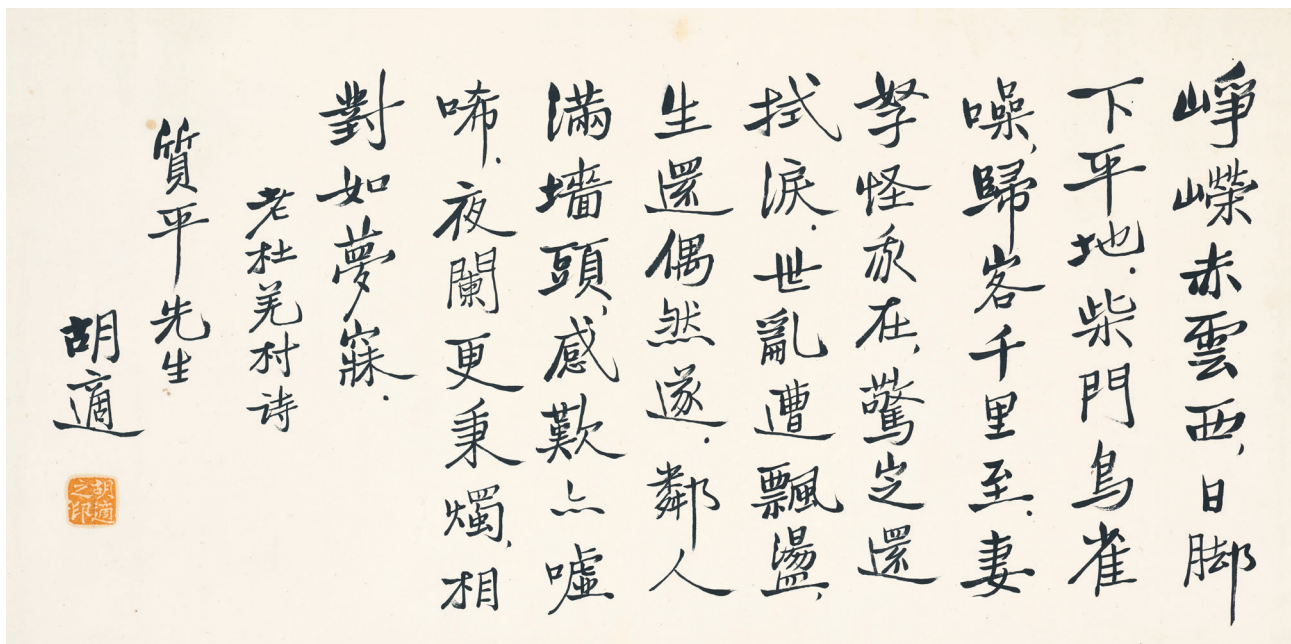 崢嶸赤雲西,日脚
下平地.柴門鳥雀
噪,歸客千里至.妻
孥怪我在,驚定還
拭淚.世亂遭飄盪,
生還偶然遂.鄰人
滿墻頭,感歎亦噓
唏.夜闌更秉燭,相
對如夢寐.
老杜羌村诗
質平先生
胡適
胡適之印